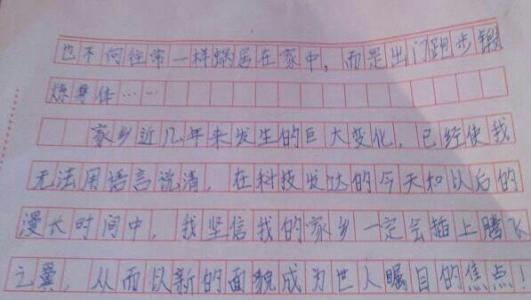 也不向往常一样蜗居在家中，而是出门跑步锻
炼身体……
家乡近几年来发生的巨大变化，已经使我
无法用语言说清，在科技发达的今天和以后的
漫长时间中，我坚信我的家乡一定会插上腾飞
之翼，从而以新的面貌成为世人瞩目的焦点！